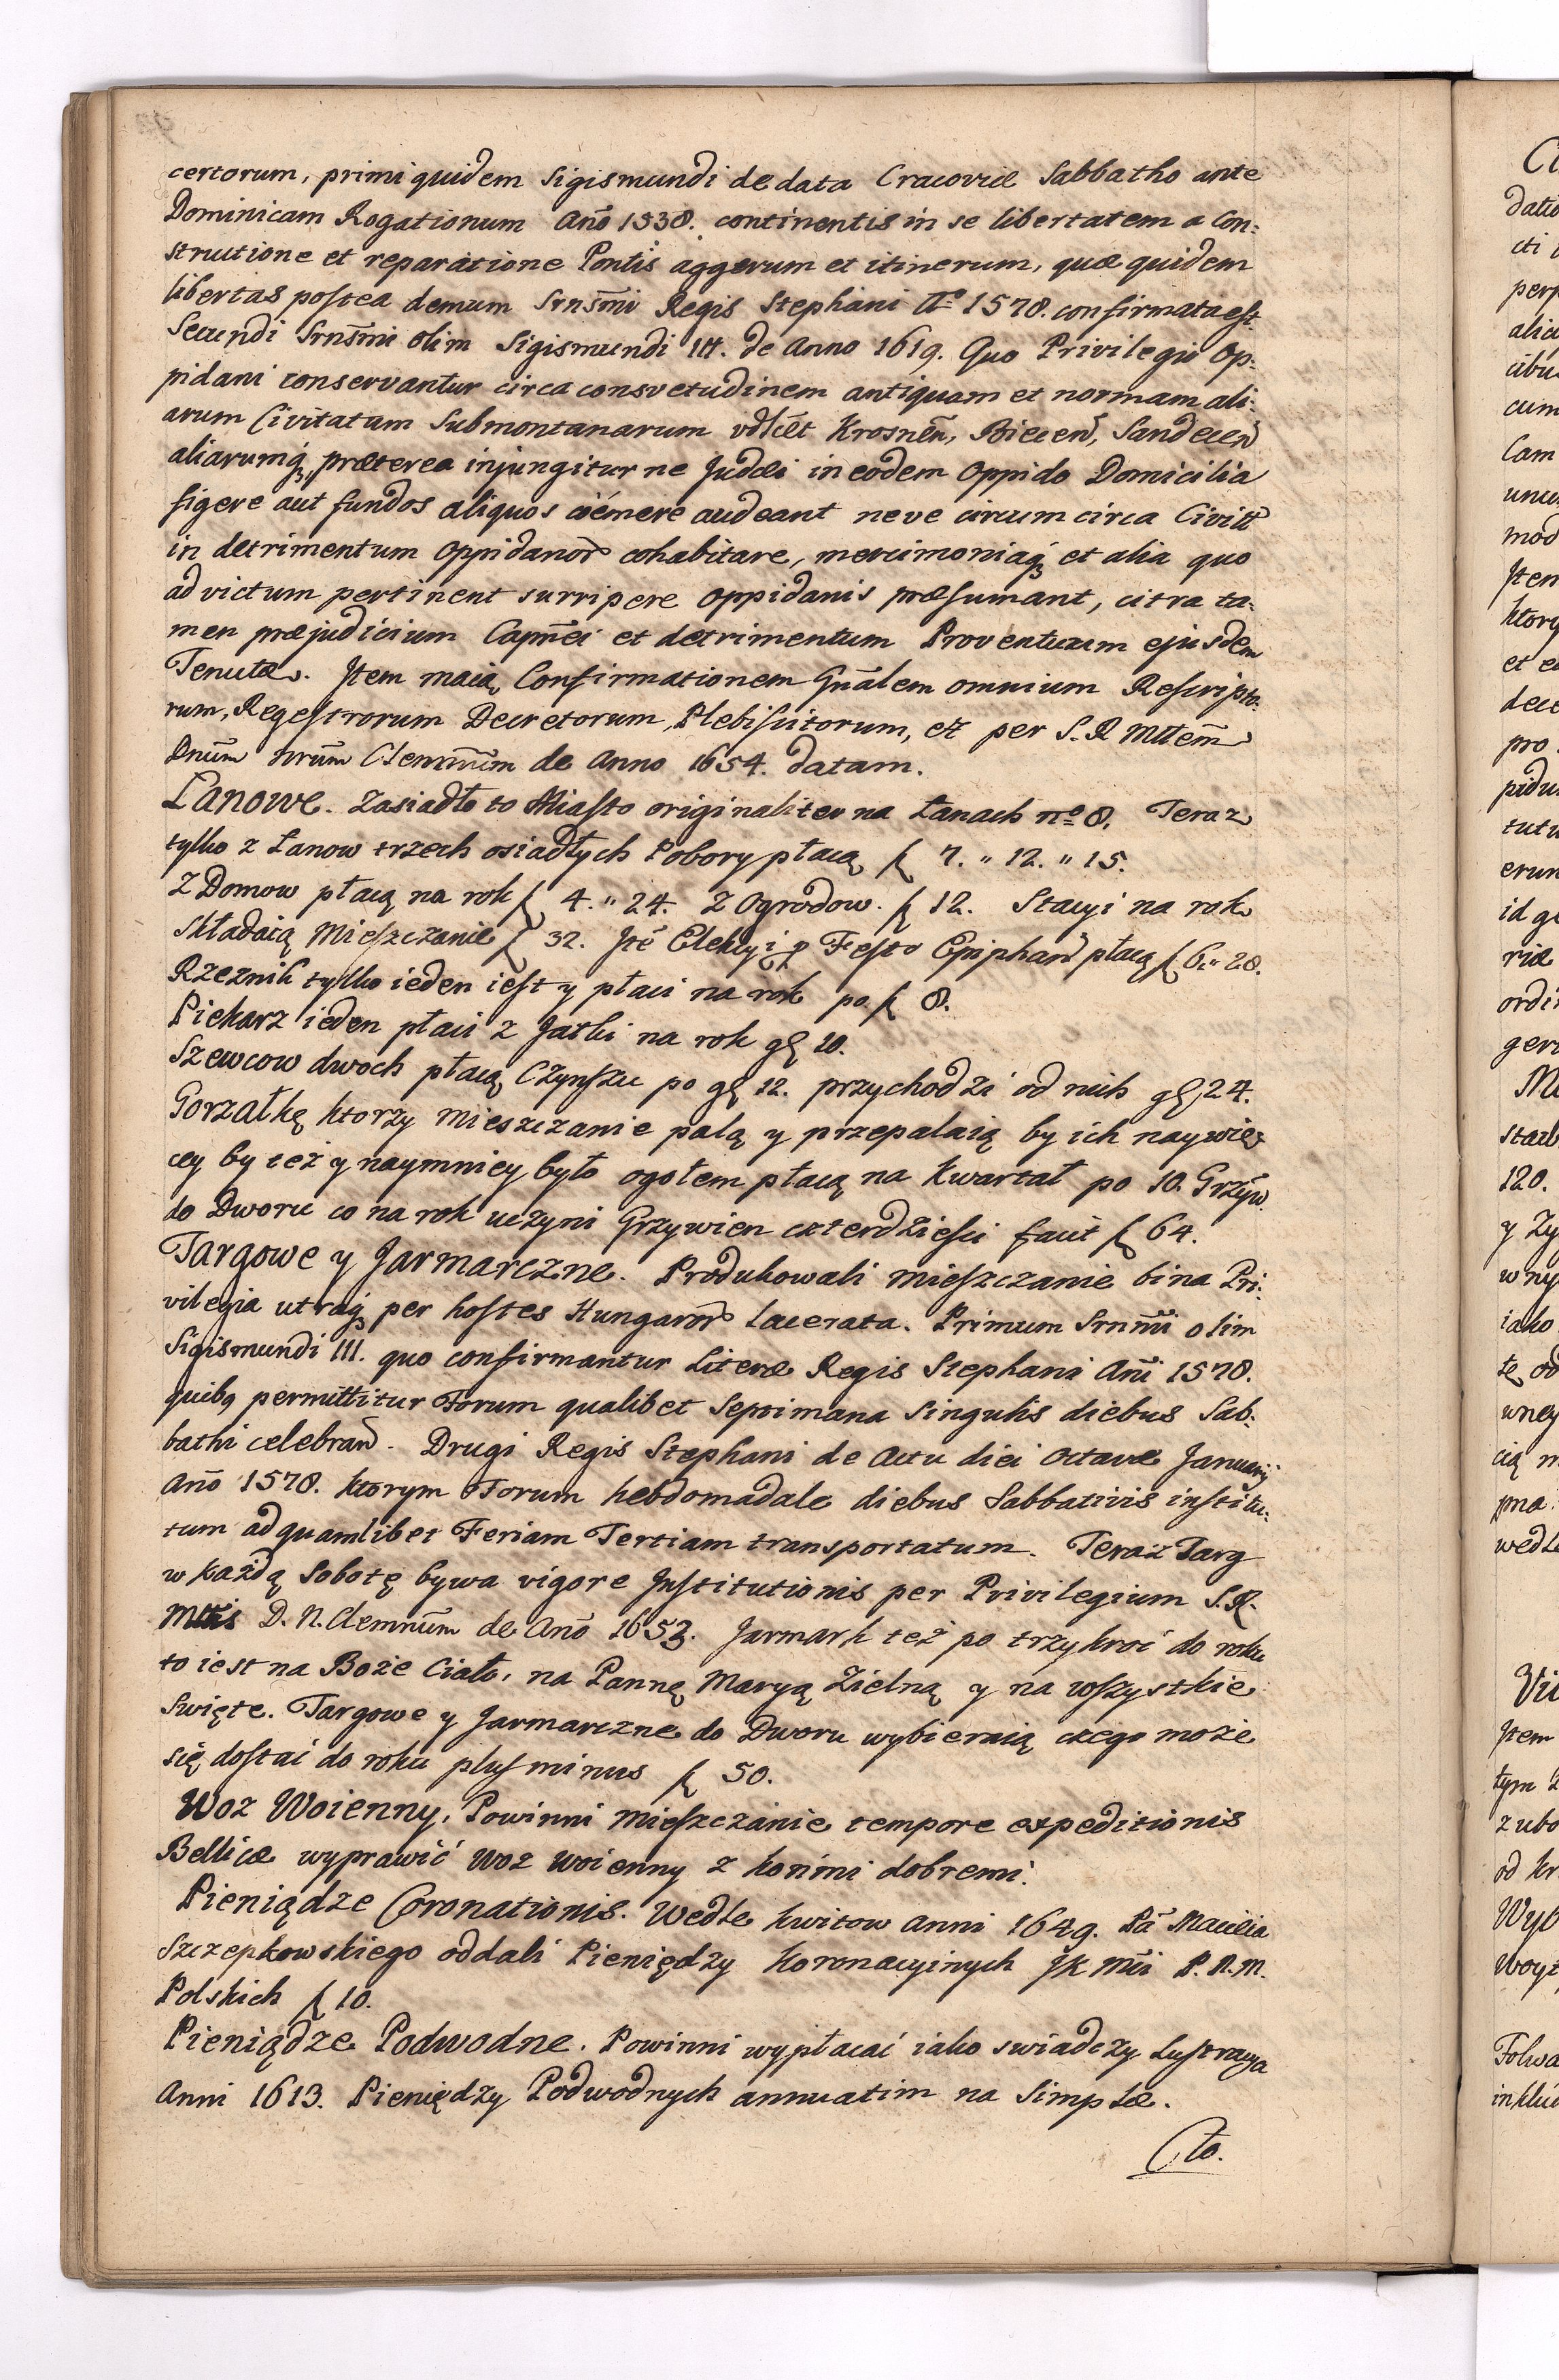 certorum, primi quidem Sigismundi de data Cracoviæ Sabbatho ante
Dominicam Rogationum Año 1538. continentis in se libertatem a Con:
structione et reparatione Pontis aggerum et itinerum, quæ quidem
libertas postea demum Srnsmi Regis Stephani Ao 1578. confirmata est
Secundi Srnsmi olim Sigismundi III. de Anno 1619. Quo Privilegio Op:
pidani conservantur circa consvetudinem antiquam et normam ali:
arum Civitatum Submontanarum vdlĉet Krosneñ, Bieceñ, Sandeceñ
aliarumq, præterea injungitur ne Judæi in eodem Oppido Domicilia
figere aut fundos aliquos emere audeant neve circum circa Civitt
in detrimentum Oppidanor cohabitare, mercimoniaq et alia quo
ad victum pertinent surripere Oppidanis præsumant, citra ta:
men præjudicium Capnei et detrimentum Proventuum ejusdem
Tenutæ. Item maią Confirmationem Gnalem omnium Rescripto:
rum, Regestrorum Decretorum, Plebiscitorum, etc per S. R Mttem
Dnum nrum Clemmum de Anno 1654. datam.
Łanowe. Zasiadło to Miasto originaliter na Łanach no 8. Teraz
tylko z Łanow trzech osiadłych Pobory płacą f 7. " 12. " 15.
Z Domow płacą na rok f 4. " 24. Z Ogrodow. f 12. Stacyi na rok
składaią Mieszczanie f 32. Ite Elekcyi p Festo Epiphañ płacą f 6. " 28.
Rzeznik tylko ieden iest y płaci na rok po f 8.
Piekarz ieden płaci z Jatki na rok gl 20.
Szewcow dwoch płacą Czynszu po gl 12. przychodzi od nich gl 24.
Gorzałkę ktorzy Mieszczanie palą y przepalaią by ich naywię:
cey by też y naymniey było ogołem płacą na Kwartał po 10. Grzyw.
do Dworu co na rok uczyni Grzywien czterdzieści facit f 64.
Targowe y Jarmarczne. Produkowali Mieszczanie bina Pri:
vilegia utraq per hostes Hungaror lacerata. Primum Srnmi olim
Sigismundi III. quo confirmantur Literæ Regis Stephani Añi 1578.
quibq permittitur Forum qualibet Septimana singulis diebus Sab:
bathi celebrañ. Drugi Regis Stephani de Actu diei Octavæ Januarij
Año 1578. ktorym Forum hebdomadale diebus Sabbativis institu:
tum ad quamlibet Feriam Tertiam transportatum. Teraz Targ
w każdą Sobotę bywa vigore Institutionis per Privilegium S. R.
Mttis D. N. Clemnum de Año 1653. Jarmark też po trzykroć do roku
to iest na Boże Ciało, na Pannę Maryą Zielną y na wszystkie
Swięte. Targowe y Jarmarczne do Dworu wybieraią czego może
się dostać do roku plus minus f 50.
Woz Woienny, Powinni Mieszczanie tempore expeditionis
Bellicæ wyprawić Woz Woienny z końmi dobremi.
Pieniądze Coronationis. Wedle kwitow Anni 1649. Pa Macieia
Szczepkowskiego oddali Pieniędzy Koronacyinych JK Mci P. N. M.
Polskich f 10.
Pieniądze Podwodne. Powinni wypłacać iako swiadczy Lustracya
Anni 1613. Pieniędzy Podwodnych annuatim na Simplæ.
Cło.